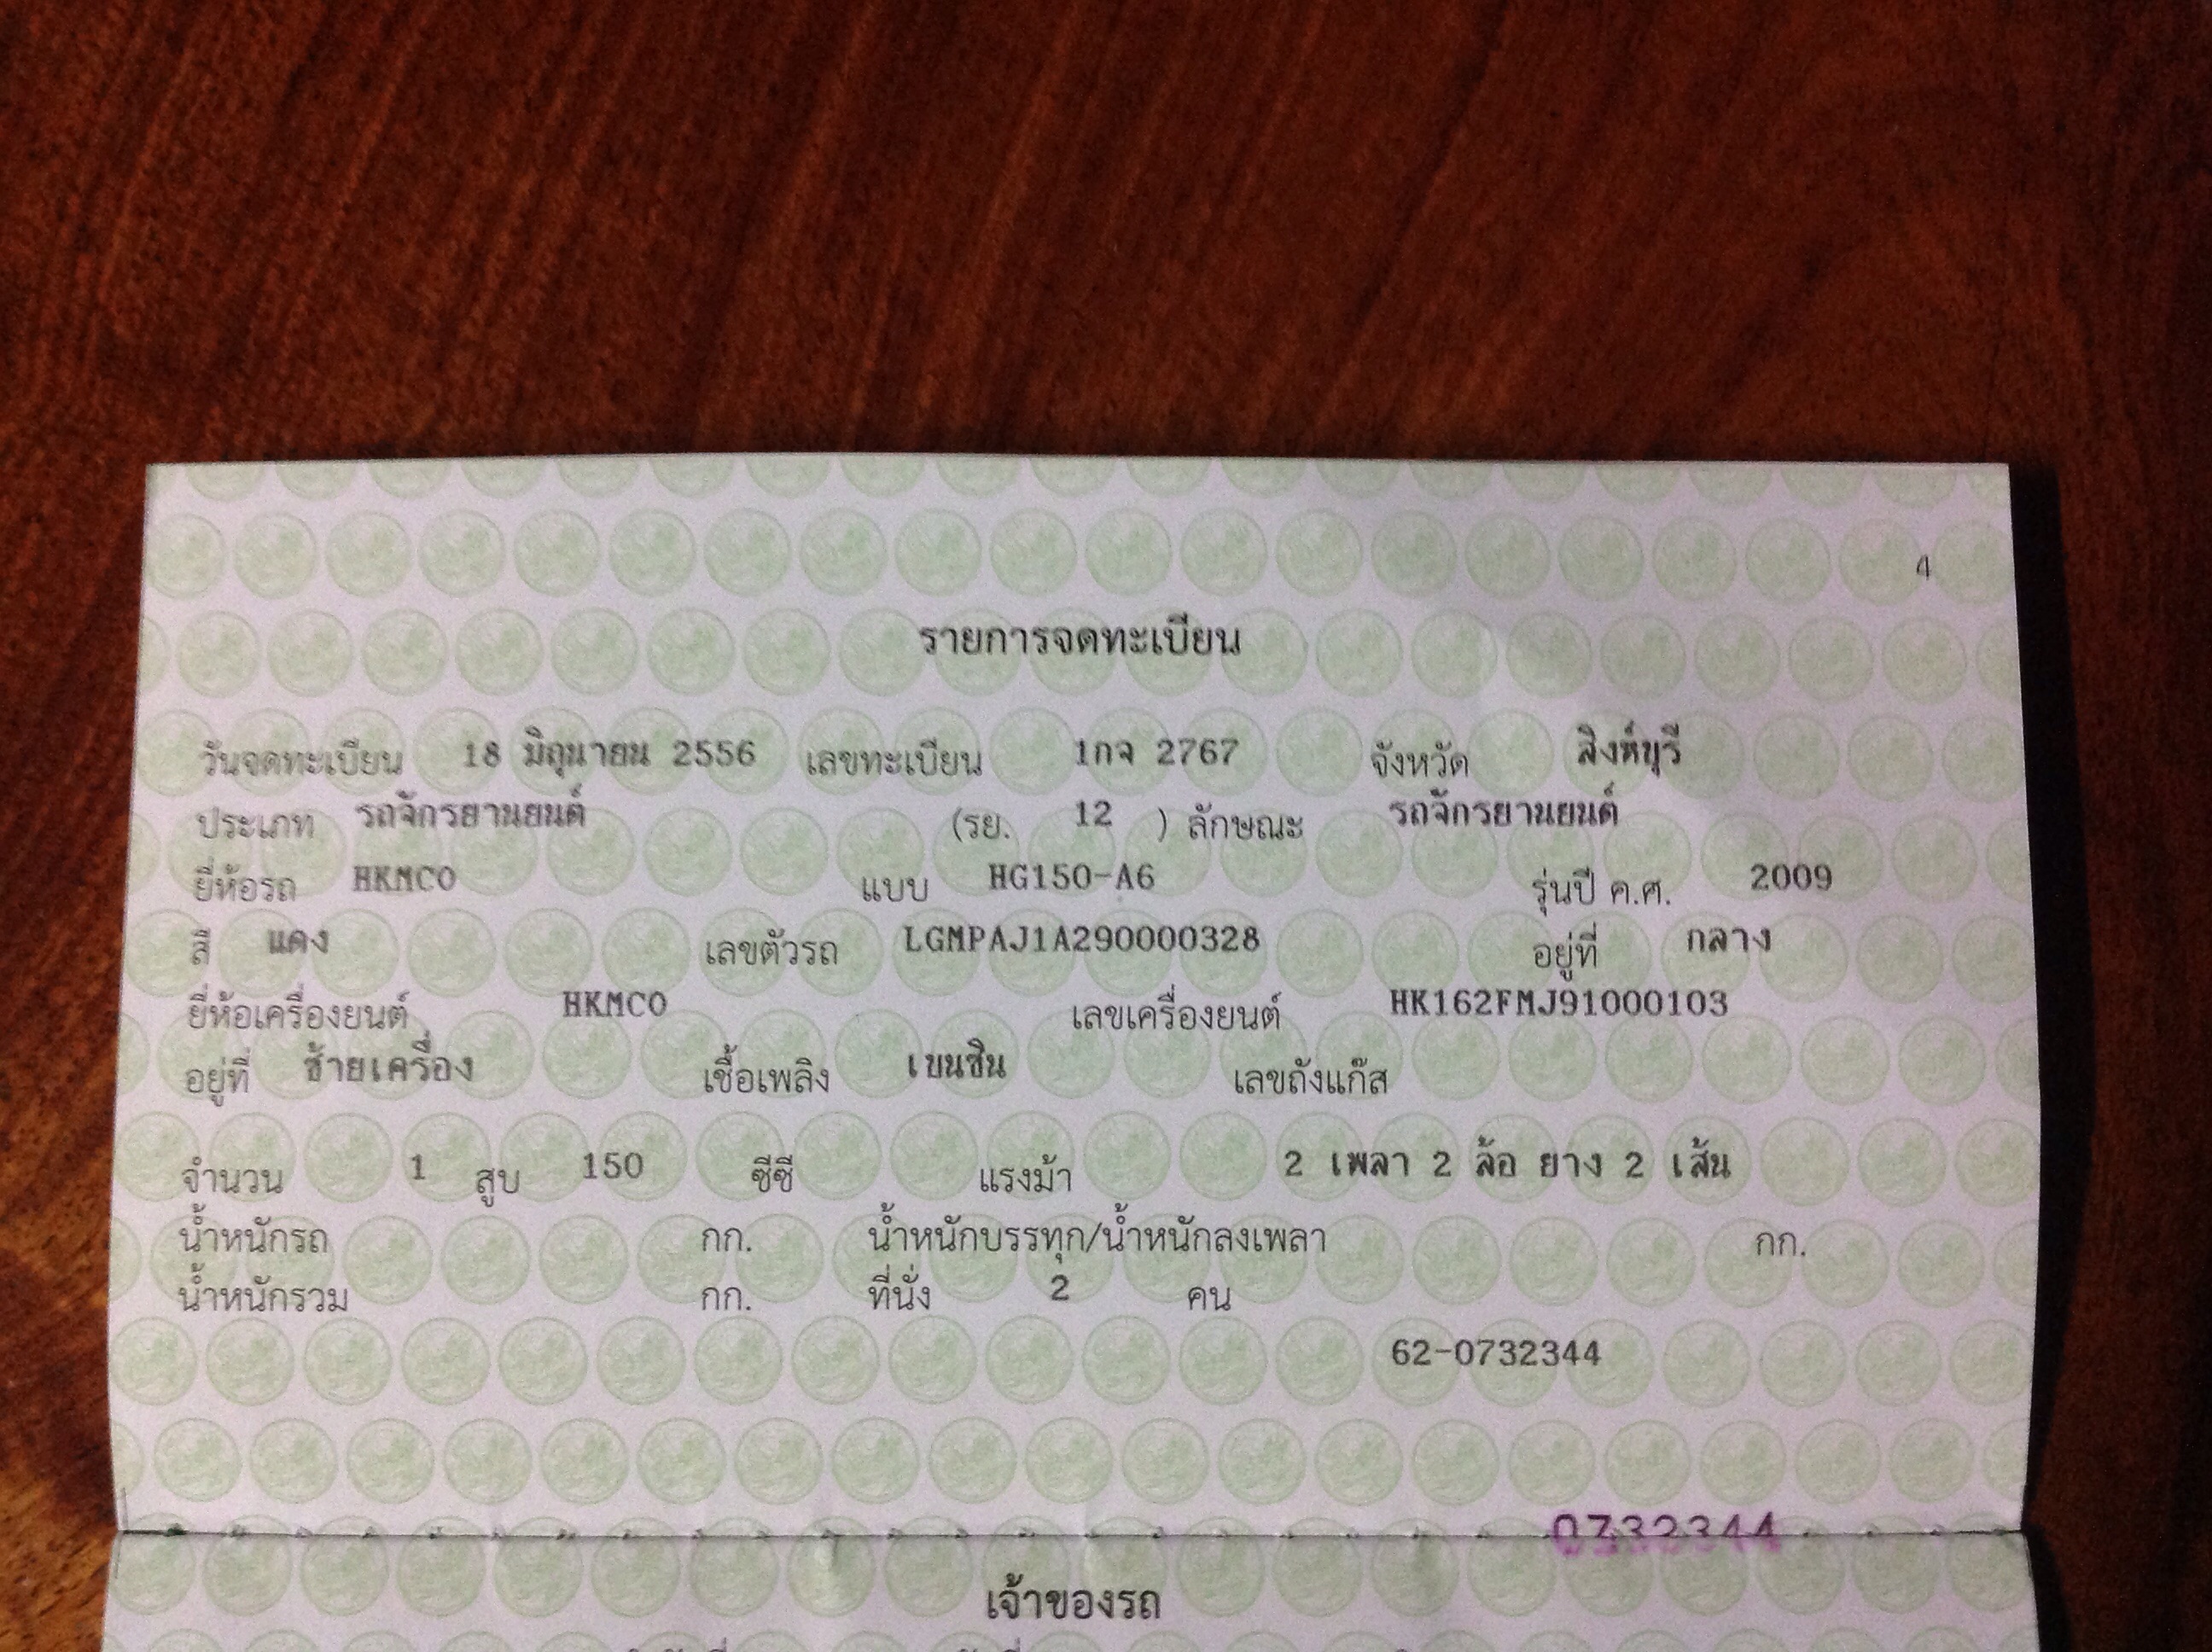 4
รายการจดทะเบียน
วันจดทะเบียน 18 มิถุนายน 2556 เลขทะเบียน 1กจ 2767 จังหวัด สิงห์บุรี
ประเภท รถจักรยานยนต์ (รย. 12 ) ลักษณะ รถจักรยานยนต์
ยี่ห้อรถ HKMCO แบบ HG150-A6 รุ่นปี ค.ศ. 2009
สี แดง เลขตัวรถ LGMPAJ1A290000328 อยู่ที่ กลาง
ยี่ห้อเครื่องยนต์ HKMCO เลขเครื่องยนต์ HK162FMJ91000103
อยู่ที่ ซ้ายเครื่อง เชื้อเพลิง เบนซิน เลขถังแก๊ส
จำนวน 1 สูบ 150 ซีซี แรงม้า 2 เพลา 2 ล้อ ยาง 2 เส้น
น้ำหนักรถ กก. น้ำหนักบรรทุก/น้ำหนักลงเพลา กก.
น้ำหนักรวม กก. ที่นั่ง 2 คน
62-0732344
0732344
เจ้าของรถ